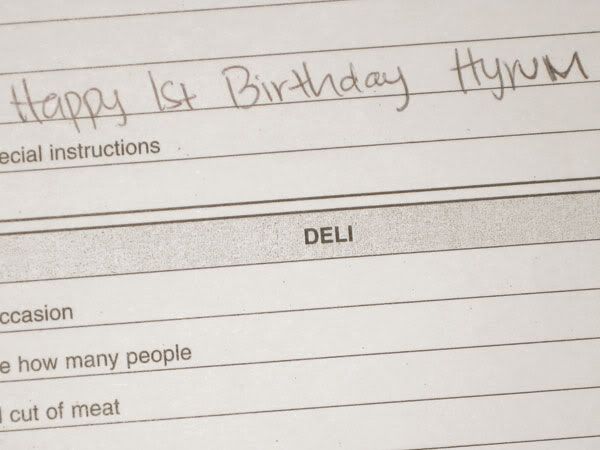 Happy 1st Birthday Hyrum
ecial instructions
DELI
ccasion
e how many people
l cut of meat